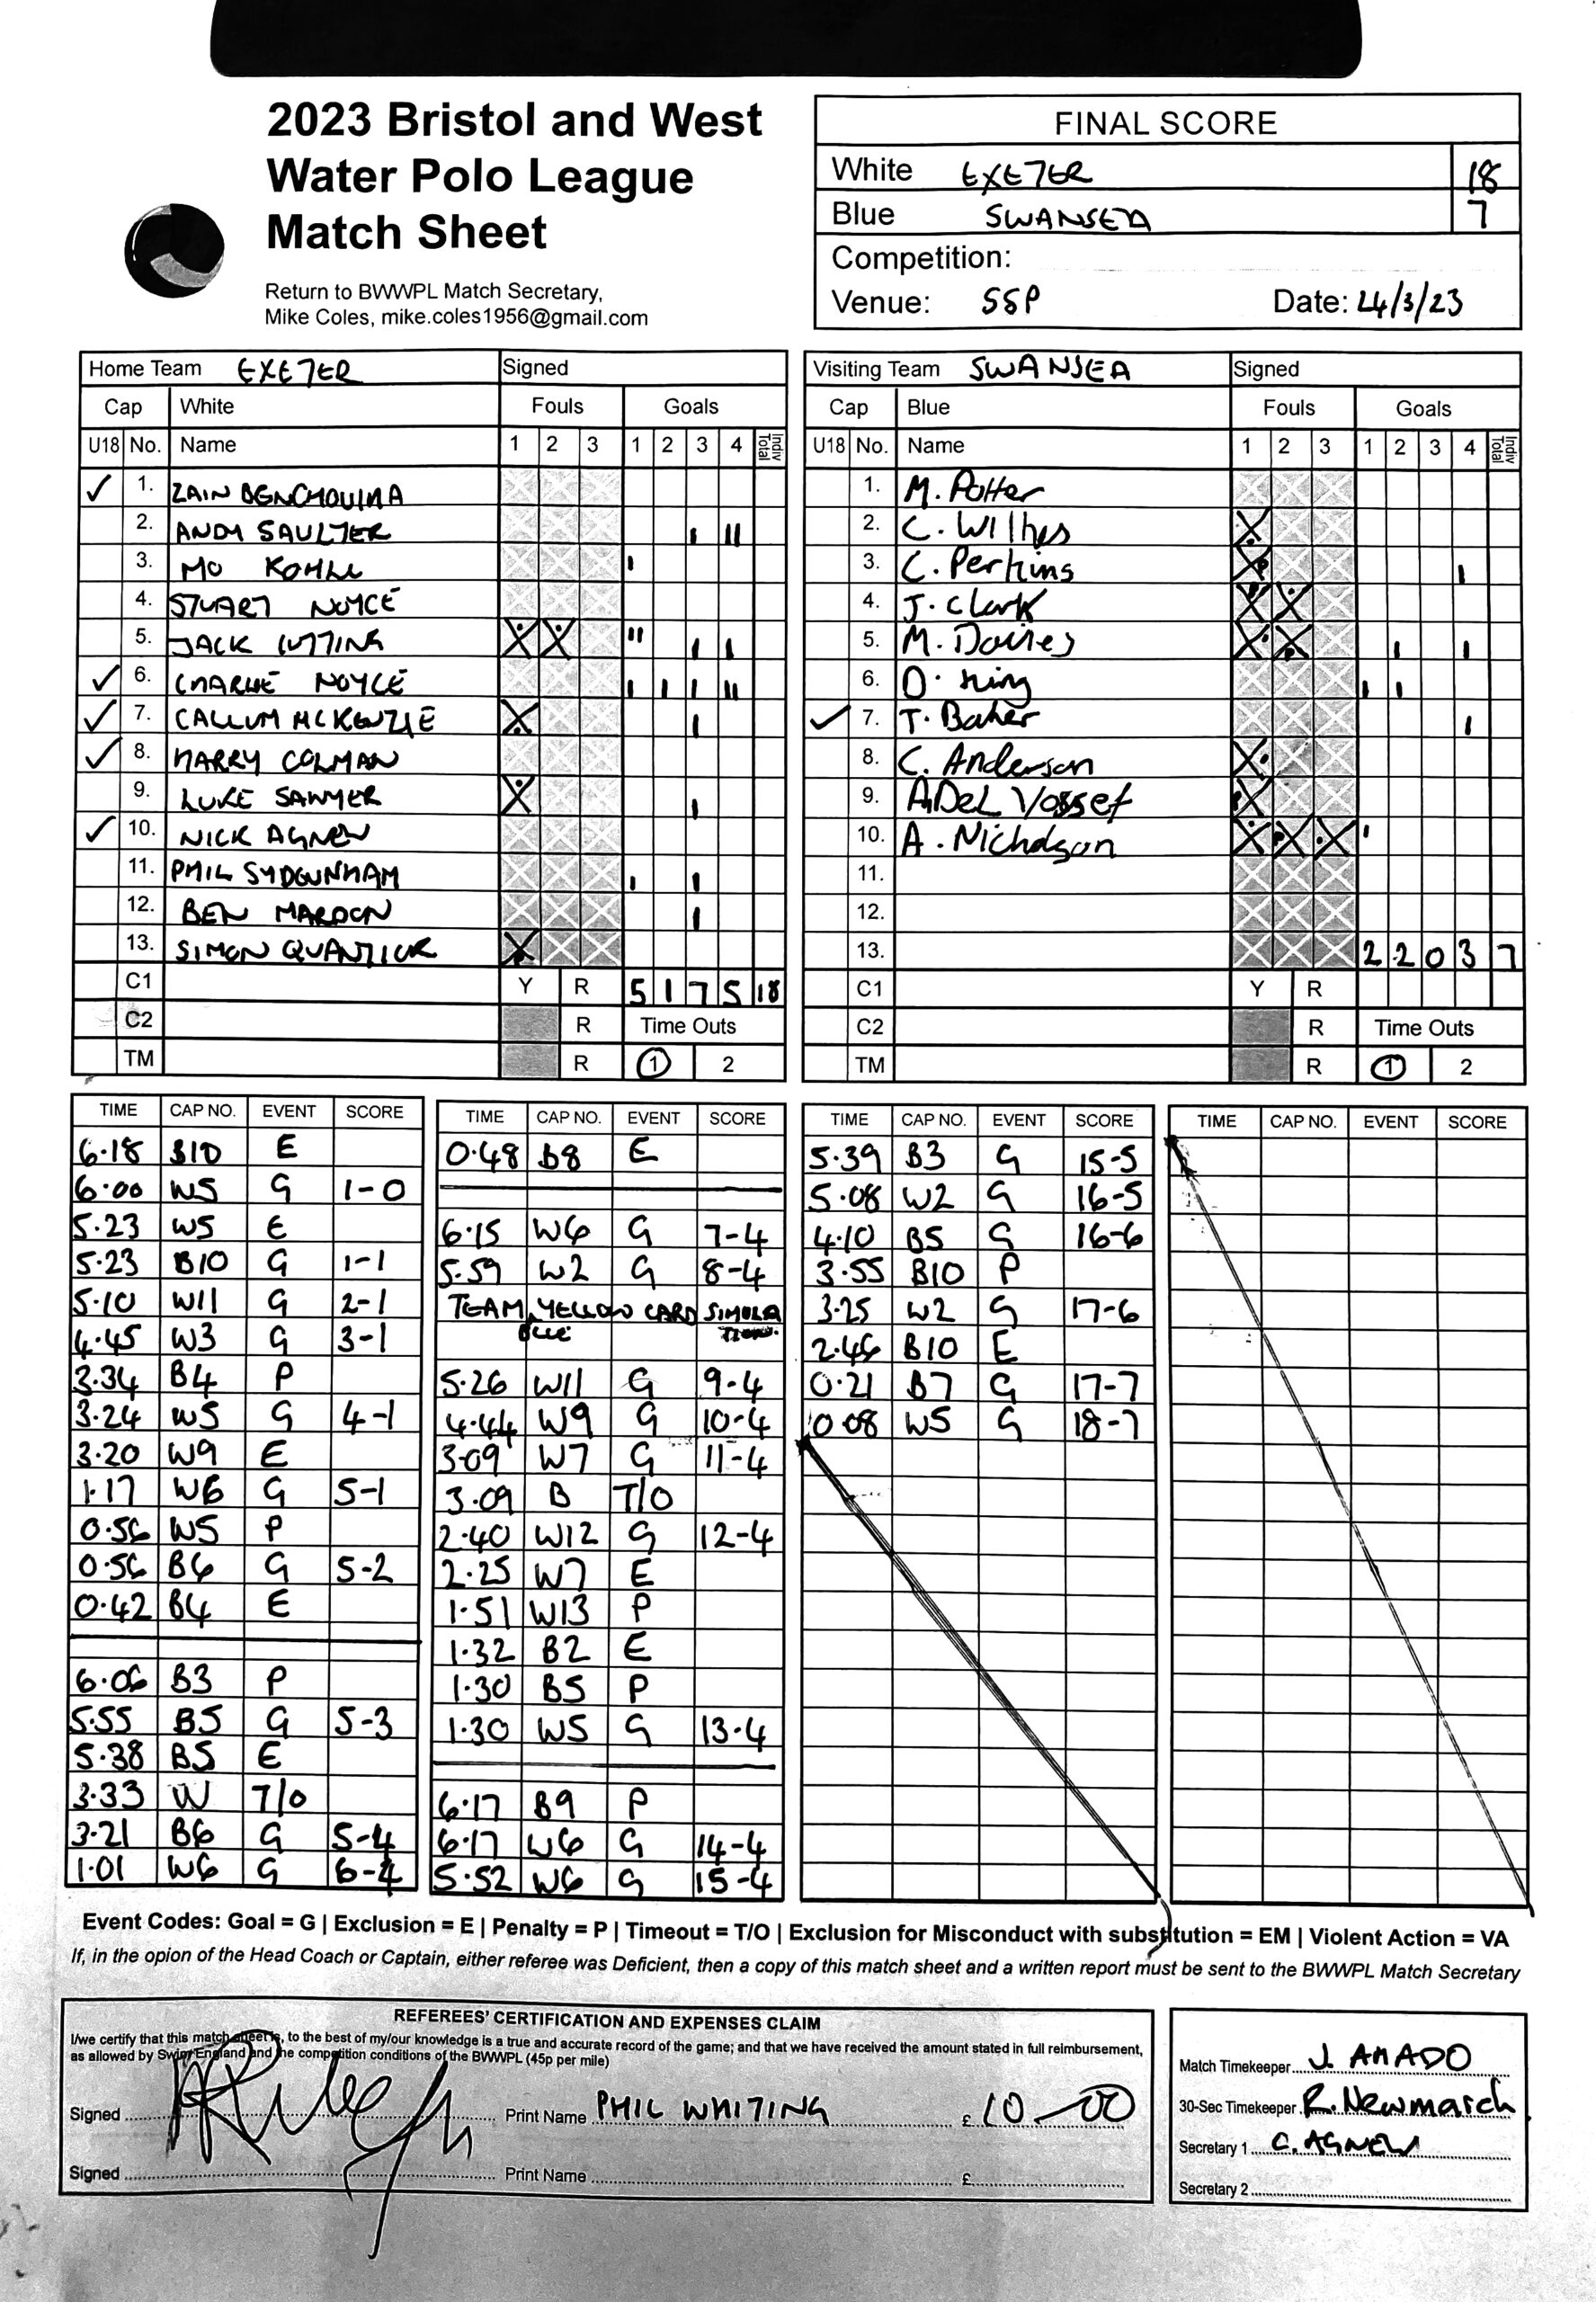 2023 Bristol and West
Water Polo League
Match Sheet
Return to BWWPL Match Secretary,
Mike Coles, mike.coles1956@gmail.com
FINAL SCORE
White EXETER 18
Blue SWANSEA 7
Competition:
Venue: SSP Date: 4/3/23
Home Team EXETER Signed
Cap White Fouls Goals
U18 No. Name 1 2 3 1 2 3 4 Indiv Total
✓ 1. ZAIN BENCHOUIHA
2. ANDY SAULTER I II
3. MO KOHLI I
4. STUART NOYCE
5. JACK CUTTING X X II I I
✓ 6. CHARLIE NOYCE I I I II
✓ 7. CALLUM MCKENZIE X I
✓ 8. HARRY COLMAN
9. LUKE SAWYER X I
✓ 10. NICK AGNEW
11. PHIL SYDENHAM I I
12. BEN MARDON I
13. SIMON QUANTICK X
C1 Y R 5 1 7 5 18
C2 R Time Outs
TM R 1 2
Visiting Team SWANSEA Signed
Cap Blue Fouls Goals
U18 No. Name 1 2 3 1 2 3 4 Indiv Total
1. M. Potter
2. C. Wilkes X
3. C. Perkins X I
4. J. Clark X X
5. M. Davies X X I I
6. D. King I I
✓ 7. T. Baker I
8. C. Anderson X
9. ADeL Yossef X
10. A. Nicholson X X X I
11.
12.
13. 2 2 0 3 7
C1 Y R
C2 R Time Outs
TM R 1 2
TIME CAP NO. EVENT SCORE
6.18 B10 E
6.00 W5 G 1-0
5.23 W5 E
5.23 B10 G 1-1
5.10 W11 G 2-1
4.45 W3 G 3-1
3.34 B4 P
3.24 W5 G 4-1
3.20 W9 E
1.17 W6 G 5-1
0.56 W5 P
0.56 B6 G 5-2
0.42 B4 E
6.06 B3 P
5.55 B5 G 5-3
5.38 B5 E
3.33 W T/O
3.21 B6 G 5-4
1.01 W6 G 6-4
TIME CAP NO. EVENT SCORE
0.48 B8 E
6.15 W6 G 7-4
5.59 W2 G 8-4
TEAM YELLOW CARD SIMULA
BLUE TION.
5.26 W11 G 9-4
4.44 W9 G 10-4
3.09 W7 G 11-4
3.09 B T/O
2.40 W12 G 12-4
2.25 W7 E
1.51 W13 P
1.32 B2 E
1.30 B5 P
1.30 W5 G 13-4
6.17 B9 P
6.17 W6 G 14-4
5.52 W6 G 15-4
TIME CAP NO. EVENT SCORE
5.39 B3 G 15-5
5.08 W2 G 16-5
4.10 B5 G 16-6
3.55 B10 P
3.25 W2 G 17-6
2.46 B10 E
0.21 B7 G 17-7
0.08 W5 G 18-7
TIME CAP NO. EVENT SCORE
Event Codes: Goal = G | Exclusion = E | Penalty = P | Timeout = T/O | Exclusion for Misconduct with substitution = EM | Violent Action = VA
If, in the opion of the Head Coach or Captain, either referee was Deficient, then a copy of this match sheet and a written report must be sent to the BWWPL Match Secretary
REFEREES' CERTIFICATION AND EXPENSES CLAIM
I/we certify that this match sheet is, to the best of my/our knowledge is a true and accurate record of the game; and that we have received the amount stated in full reimbursement,
as allowed by Swim England and the competition conditions of the BWWPL (45p per mile)
Signed Print Name PHIL WHITING £ 10-00
Signed Print Name £
Match Timekeeper J. AMADO
30-Sec Timekeeper R. Newmarch
Secretary 1 C. AGNEW
Secretary 2